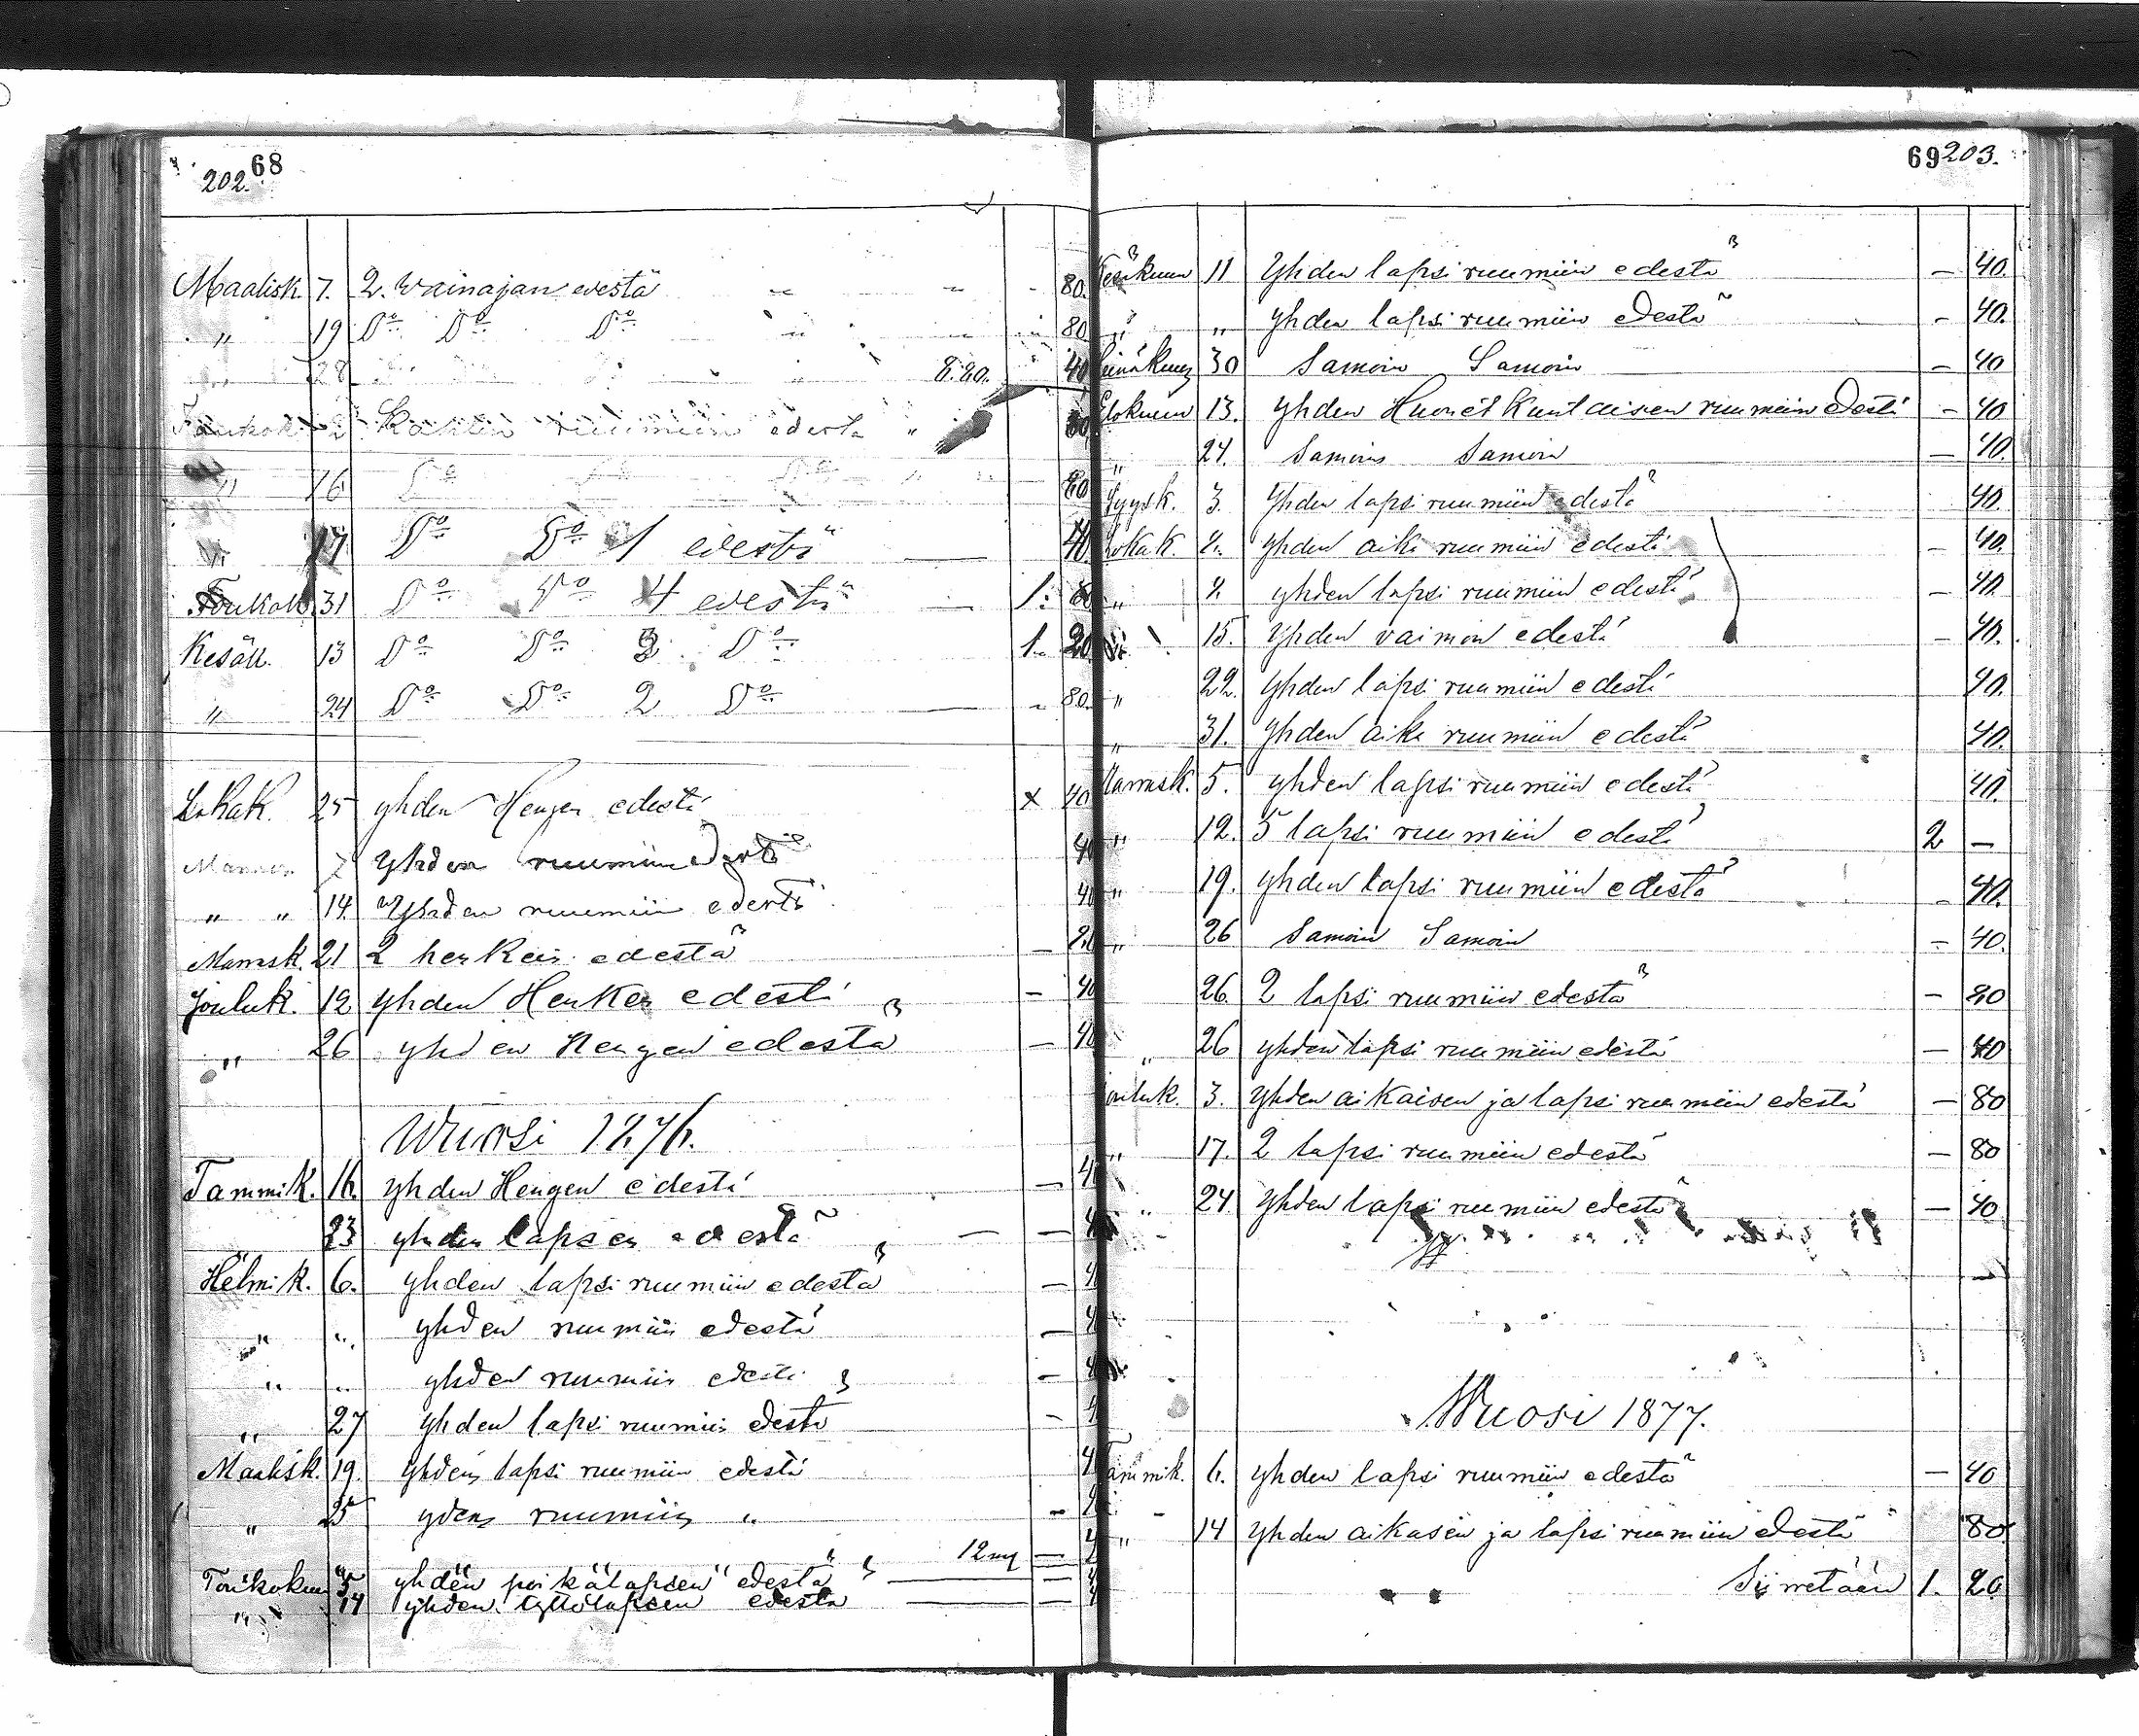 202. 68
Maalisk. 7. 2. Wainajan edestä " " - 80.
" 19 Do Do Do " " " 80
" 28 8.80. 40
Toukok. Kahden ruumiin edestä " 80
" 16 Do Do 80
" 17 Do Do 1 edestä — 40
Toukok. 31 Do Do 4 edestä — 1: 60
Kesäk. 13 Do Do 3 Do 1. 20
" 24 Do Do 2 Do — - 80.
Lokak. 25 yhden Hengen edestä x 40
7 Yhden ruumiin edestä 40
" " 14 Yhden ruumiin edestä 40
Marrask. 21 2 henkein edestä — 80
Jouluk. 12 yhden Henken edestä — 40
" 26 yhden Hengen edestä — 40
Wuosi 1876.
Tammik. 16. yhden Hengen edestä — 4
23 yhden lapsen edestä — — 4
Helmik. 6. yhden lapsi ruumiin edestä — 4
" " yhden ruumiin edestä — 4
" " yhden ruumiin edestä — 4
" 27 yhden lapsi ruumiin edestä - 4
Maalisk. 19. yhden lapsi ruumiin edestä 4
" 25 yden ruumiin " -
12 my —
Toukokuu 5 yhden poikälapsen edestä — — 4
" 14 yhden tyttölapsen edestä — — 4
69 203.
Kesäkuun 11 Yhden lapsi ruumiin edestä — 40.
" " yhden lapsi ruumiin edestä - 40.
Heinäkuun 30 Samoin Samoin — 40
Elokuun 13. yhden Huonet kuntaisen ruumiin edestä - 40
" 24. Samoin Samoin — 40.
Syysk. 3. Yhden lapsi ruumiin edestä 40.
Lokak. 2. yhden aika ruumiin edestä - 40.
" 2 yhden lapsi ruumiin edestä - 40.
" 15. Yhden vaimon edestä - 40.
" 22. Yhden lapsi ruumiin edestä 40.
" 31. Yhden aika ruumiin edestä 40.
Marrask. 5. yhden lapsi ruumiin edestä 40.
" 12. 5 lapsi ruumiin edestä 2 —
" 19. yhden lapsi ruumiin edestä - 40.
" 26 Samoin Samoin - 40.
26. 2 lapsi ruumiin edestä - 80
" 26 yhden lapsi ruumiin edestä — 40
Jouluk. 3. Yhden aikaisen ja lapsi ruumiin edestä — 80
" 17. 2 lapsi ruumiin edestä — 80
" 24 Yhden lapsi ruumiin edestä — 40
Wuosi 1877.
Tammik. 6. yhden lapsi ruumiin edestä — 40
" 14 yhden aikasen ja lapsi ruumiin edestä 80.
Siirretään 1. 20